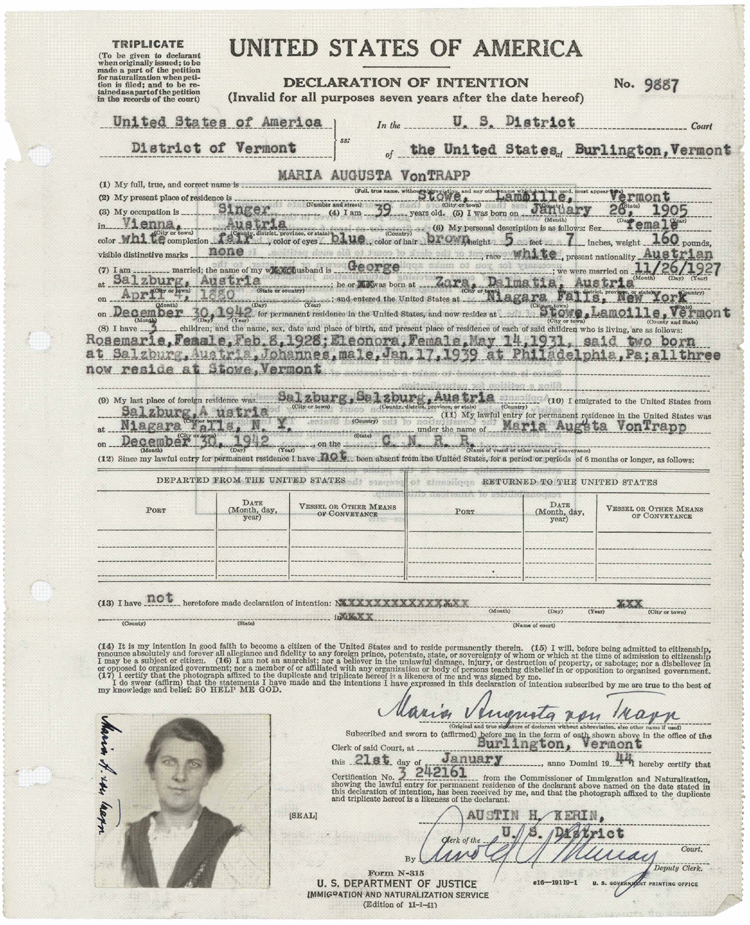 TRIPLICATE
(To be given to declarant when originally issued; to be made a part of the petition for naturalization when petition is filed; and to be retained as a part of the petition in the records of the court)
UNITED STATES OF AMERICA
DECLARATION OF INTENTION
(Invalid for all purposes seven years after the date hereof)
No. 9887
United States of America
District of Vermont
ss:
In the U. S. District Court
of the United States at Burlington, Vermont
(1) My full, true, and correct name is MARIA AUGUSTA VonTRAPP
(2) My present place of residence is Stowe, Lamoille, Vermont
(3) My occupation is Singer (4) I am 39 years old. (5) I was born on January 26, 1905
in Vienna, Austria (6) My personal description is as follows: Sex female
color white complexion fair, color of eyes blue, color of hair brown height 5 feet 7 inches, weight 160 pounds,
visible distinctive marks none race white, present nationality Austrian
(7) I am married; the name of my husband is George; we were married on 11/26/1927
at Salzburg, Austria; he was born at Zara, Dalmatia, Austria
on April 4, 1880; and entered the United States at Niagara Falls, New York
on December 30, 1942 for permanent residence in the United States, and now resides at Stowe, Lamoille, Vermont
(8) I have 3 children; and the name, sex, date and place of birth, and present place of residence of each of said children who is living, are as follows:
Rosemarie, Female, Feb. 8, 1928; Eleonora, Female, May 14, 1931, said two born
at Salzburg, Austria, Johannes, male, Jan. 17, 1939 at Philadelphia, Pa; all three
now reside at Stowe, Vermont
(9) My last place of foreign residence was Salzburg, Salzburg, Austria (10) I emigrated to the United States from
Salzburg, A ustria (11) My lawful entry for permanent residence in the United States was
at Niagara Falls, N. Y. under the name of Maria Augusta VonTrapp
on December 30, 1942 on the C. N. R. R.
(Month) (Day) (Year) (Name of vessel or other means of conveyance)
(12) Since my lawful entry for permanent residence I have not been absent from the United States, for a period or periods of 6 months or longer, as follows:
DEPARTED FROM THE UNITED STATES RETURNED TO THE UNITED STATES
PORT DATE (Month, day, year) VESSEL OR OTHER MEANS OF CONVEYANCE PORT DATE (Month, day, year) VESSEL OR OTHER MEANS OF CONVEYANCE
(13) I have not heretofore made declaration of intention: NXXXXXXXXXXXXXXXXX XXX
(Month) (Day) (Year) (City or town)
(County) (State) (Name of court)
(14) It is my intention in good faith to become a citizen of the United States and to reside permanently therein. (15) I will, before being admitted to citizenship,
renounce absolutely and forever all allegiance and fidelity to any foreign prince, potentate, state, or sovereignty of whom or which at the time of admission to citizenship
I may be a subject or citizen. (16) I am not an anarchist; nor a believer in the unlawful damage, injury, or destruction of property, or sabotage; nor a disbeliever in
or opposed to organized government; nor a member of or affiliated with any organization or body of persons teaching disbelief in or opposition to organized government.
(17) I certify that the photograph affixed to the duplicate and triplicate hereof is a likeness of me and was signed by me.
I do swear (affirm) that the statements I have made and the intentions I have expressed in this declaration of intention subscribed by me are true to the best of
my knowledge and belief: SO HELP ME GOD.
Maria Augusta von Trapp
(Original and true signature of declarant without abbreviation, also other name if used)
Subscribed and sworn to (affirmed) before me in the form of oath shown above in the office of the
Clerk of said Court, at Burlington, Vermont
this 21st day of January anno Domini 1944 I hereby certify that
Certification No. 3 242161 from the Commissioner of Immigration and Naturalization,
showing the lawful entry for permanent residence of the declarant above named on the date stated in
this declaration of intention, has been received by me, and that the photograph affixed to the duplicate
and triplicate hereof is a likeness of the declarant.
Maria A. von Trapp
[SEAL]
AUSTIN H. KERIN,
Clerk of the U. S. District Court.
By Deputy Clerk.
Form N-315
U. S. DEPARTMENT OF JUSTICE
IMMIGRATION AND NATURALIZATION SERVICE
(Edition of 11-1-41)
o16—19119-1 U. S. GOVERNMENT PRINTING OFFICE